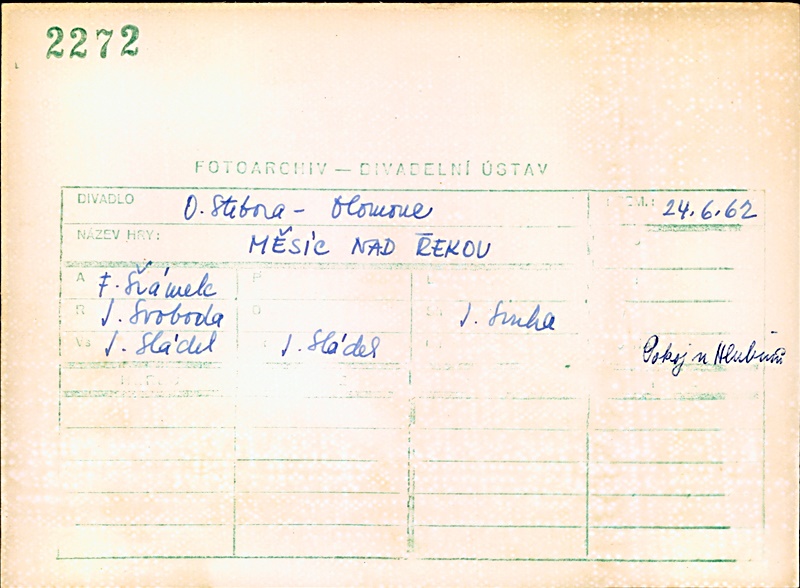 2272
FOTOARCHIV — DIVADELNÍ ÚSTAV
DIVADLO O. Stibora - Olomouc 24.6.62
NÁZEV HRY: MĚSÍC NAD ŘEKOU
A F. Šrámek P
R J. Svoboda J. Sinha
Vs J. Sládek J. Sládek Pokoj u Hlubinů